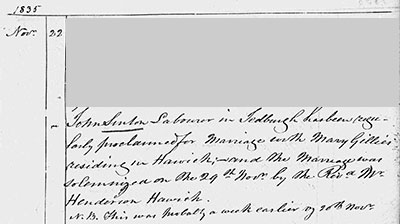 1835
Novr. 22
John Sinton Labourer in Jedburgh has been regu-
larly proclaimed for Marriage with Mary Gillies
residing in Hawick;—and the Marriage was
solemnized on the 29th Novr. by the Revd. Mr.
Henderson Hawick.
N.B. This was probably a week earlier viz 20th Novr.